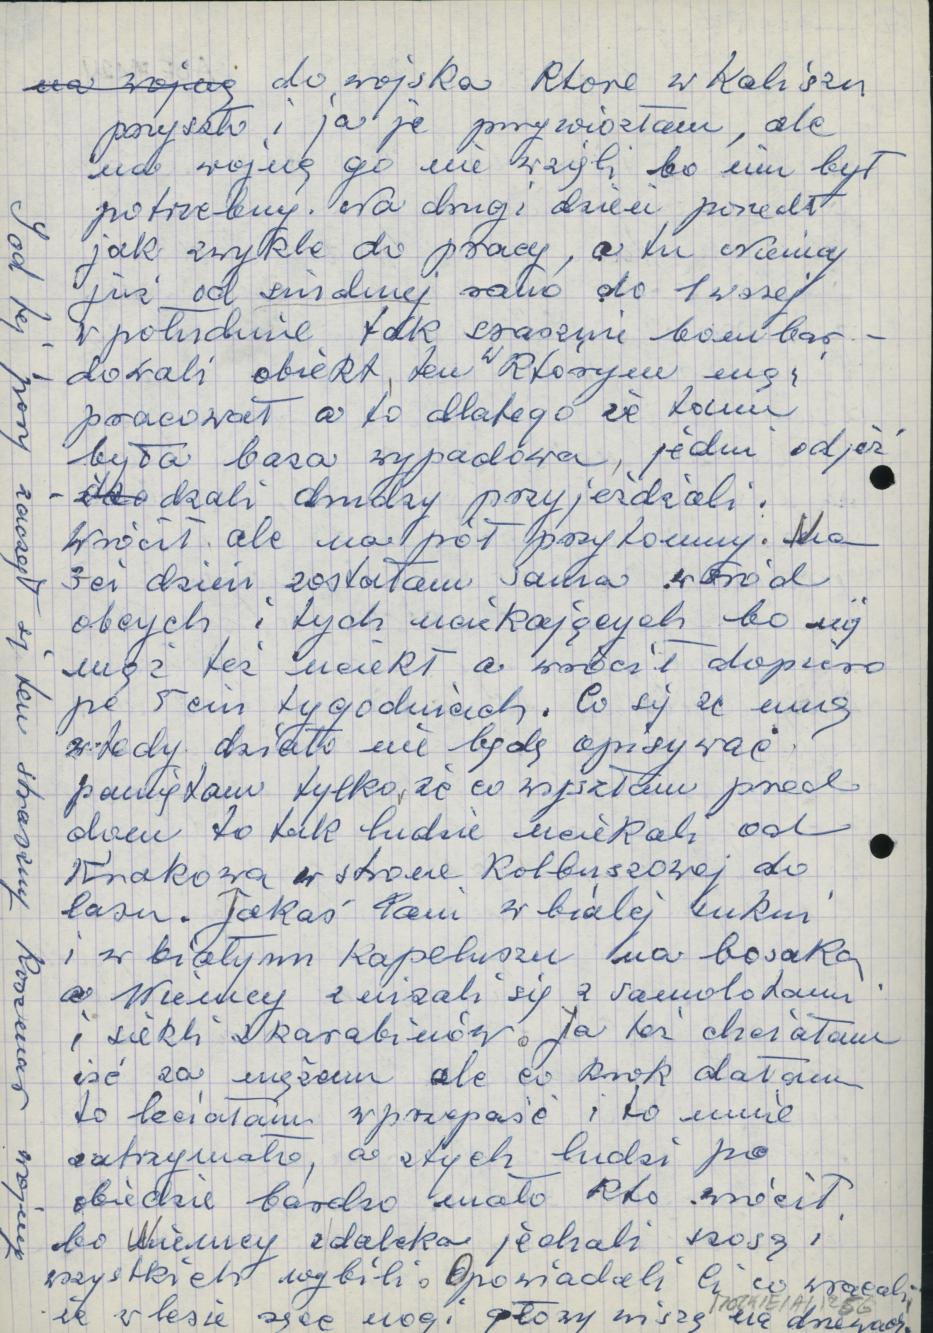 na wojnę do wojska które w Kaliszu
przyszło i ja je przywiozłam, ale
na wojnę go nie wzięli bo im był
potrzebny. Na drugi dzień poszedł
jak zwykle do pracy, a tu Niemcy
już od siódmej rano do 1wszej
w południe tak strasznie bombar-
dowali obiekt ten w którym mąż
pracował a to dlatego że tam
była baza wypadowa, jedni odjeż
dzali drudzy przyjeżdżali.
Wrócił ale na pół przytomny. Na
3ci dzień zostałam sama wśród
obcych i tych uciekających bo mój
mąż też uciekł a wrócił dopiero
po 5ciu tygodniach. Co się ze mną
wtedy działo nie będę opisywać
pamiętam tylko, że co wyszłam przed
dom to tak ludzie uciekali od
Krakowa w strone Kolbuszowej do
lasu. Jakaś Pani w białej sukni
i w białym kapeluszu na bosaka,
a Niemcy zniżali się z samolotami
i siekli z karabinów. Ja też chciałam
iść za mężem ale co krok dałam
to leciałam w przepaść i to mnie
zatrzymało, a z tych ludzi po
obiedzie bardzo mało kto wrócił,
bo Niemcy zdaleka jechali szosą i
wszystkich wybili. Opowiadali Ci co wracali,
że w lesie ręce nogi głowy wiszą na drzewach.
I od tej pory zaczął się ten straszny koszmar wojny